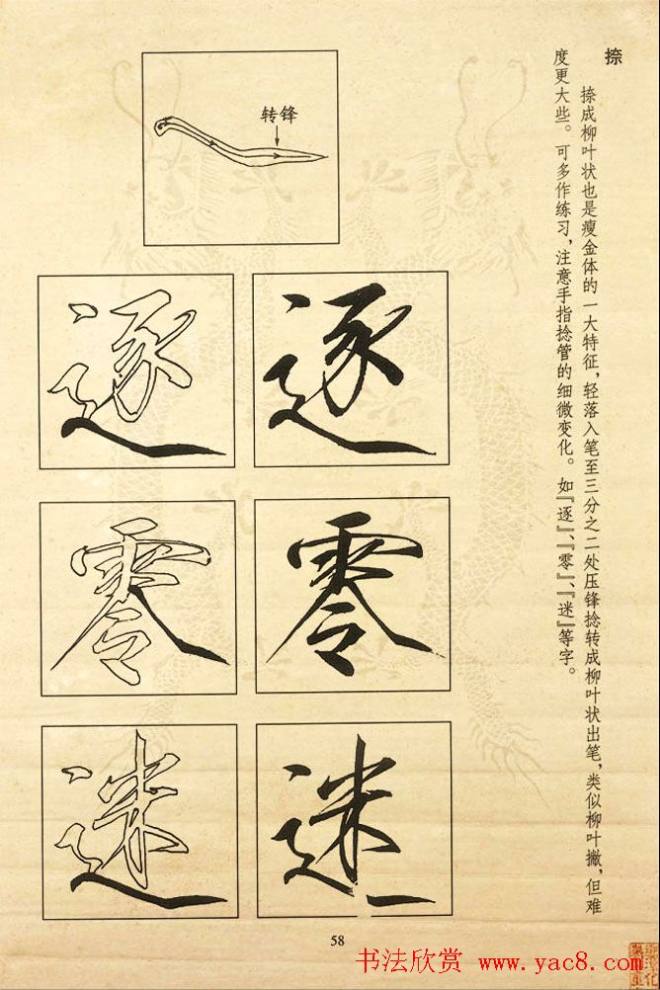 捺
捺成柳叶状也是瘦金体的一大特征，轻落入笔至三分之二处压锋捻转成柳叶状出笔，类似柳叶撇，但难
度更大些。可多作练习，注意手指捻管的细微变化。如『逐』、『零』、『迷』等字。
转锋
逐 逐
零 零
迷 迷
58
书法欣赏 www.yac8.com